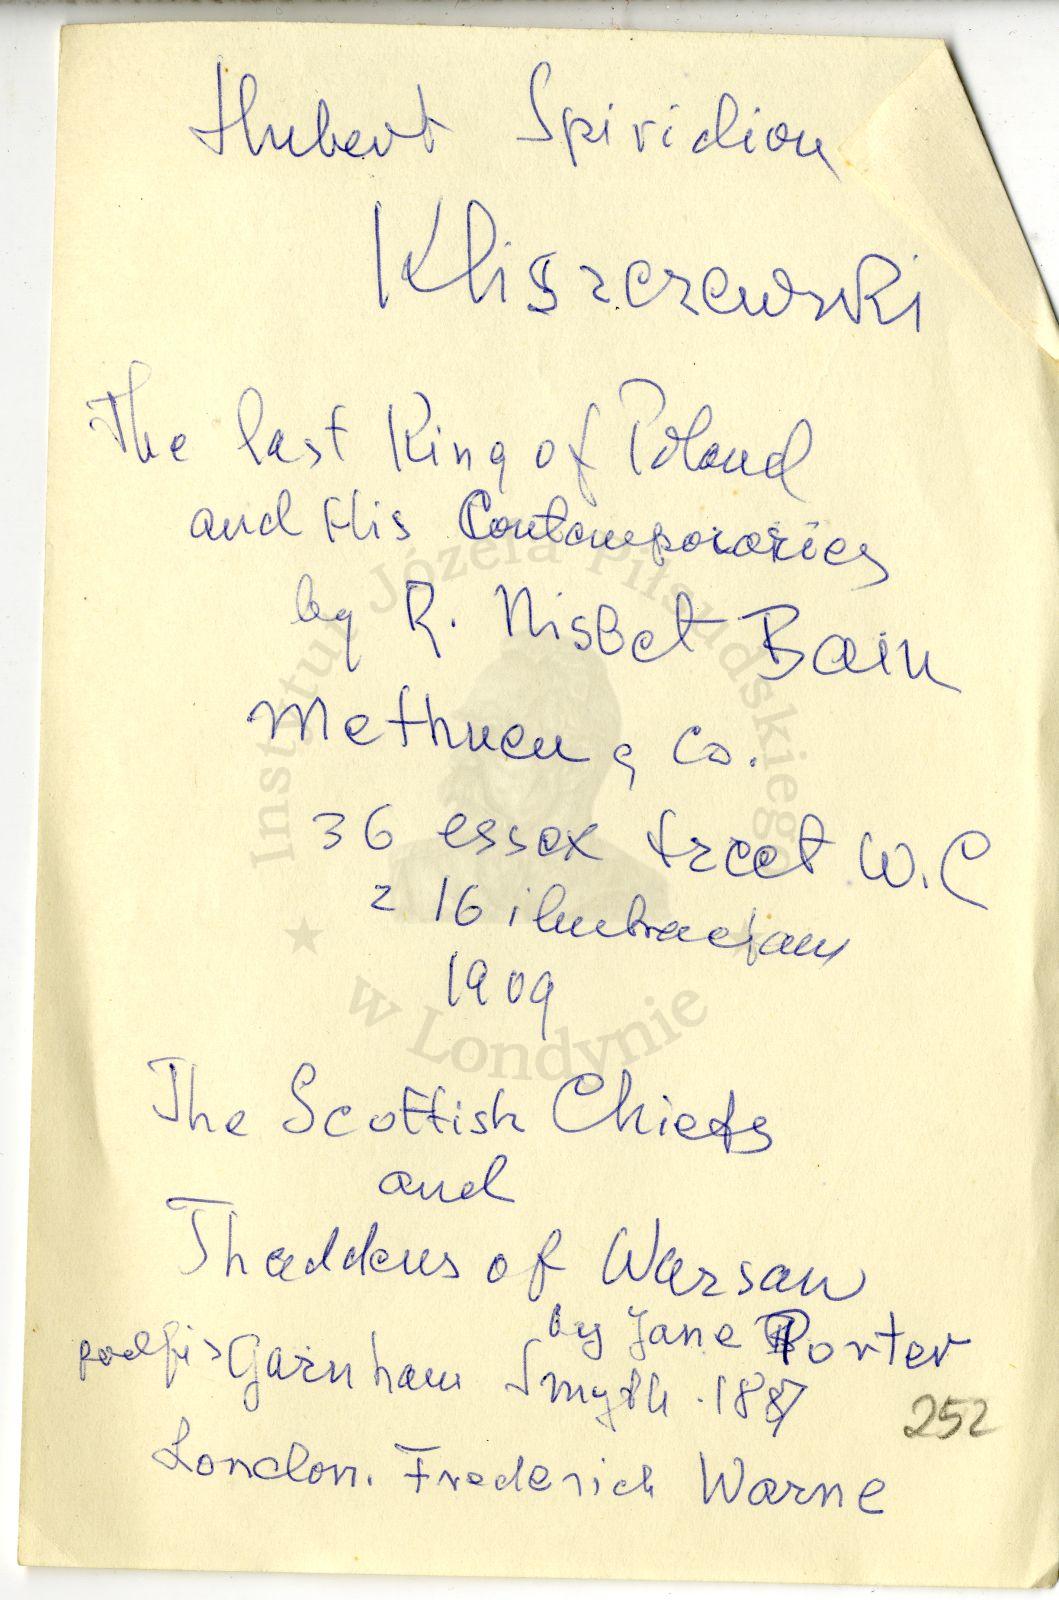 Hubert Spiridion
Kliszczewski
The last King of Poland
and His Contemporaries
by R. Nisbet Bain
Methuen & Co.
36 essex treet W.C
z 16 ilustracjam
1909
The Scottish Chiefs
and
Thaddeus of Warsaw
by Jane Porter
podpis Garnham Smyth. 1887
London. Frederick Warne
252
Instytut Józefa Piłsudskiego
w Londynie